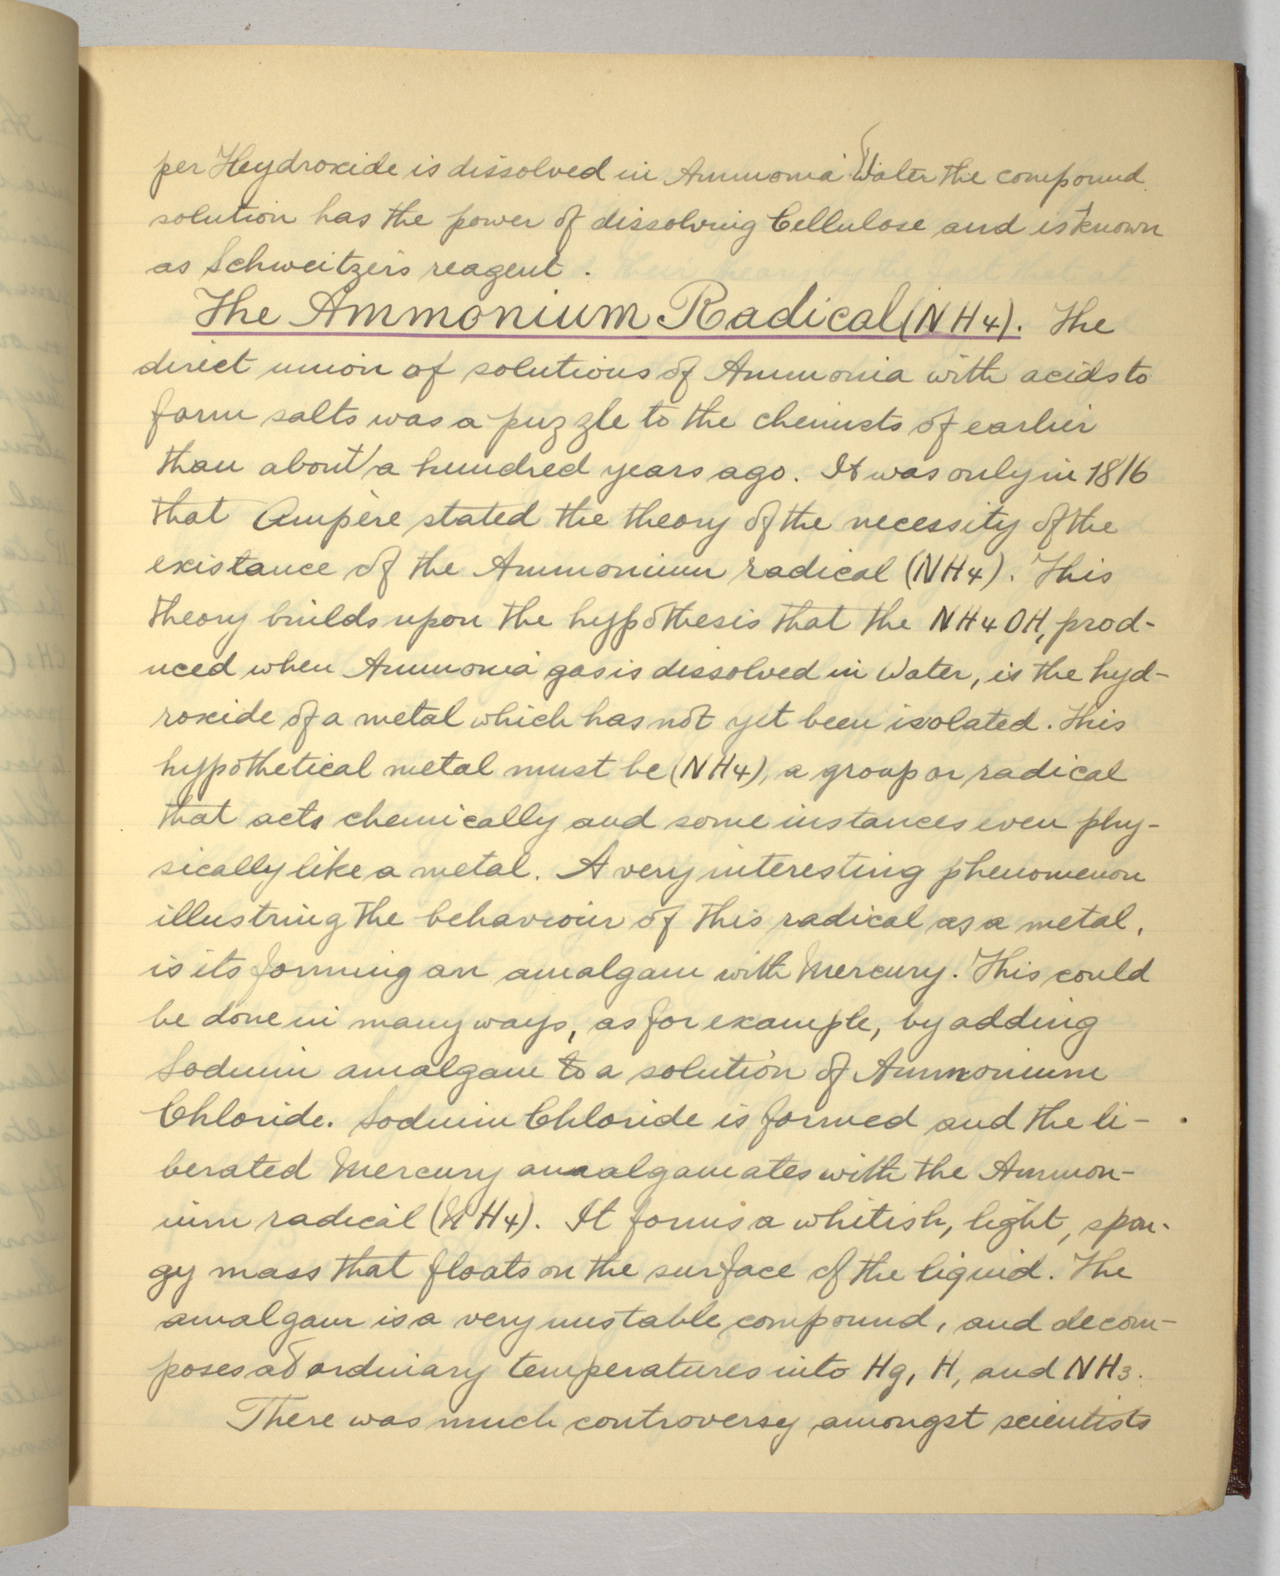 per Heydroxide is dissolved in Ammonia Water the compound
solution has the power of dissolving Cellulose and is known
as Schweitzer's reagent.
The Ammonium Radical (NH4). The
direct union of solutions of Ammonia with acids to
form salts was a puzzle to the chemists of earlier
than about a hundred years ago. It was only in 1816
that Ampère stated the theory of the necessity of the
existance of the Ammonium radical (NH4). This
theory builds upon the hyppothesis that the NH4OH, prod-
uced when Ammonia gas is dissolved in Water, is the hyd-
roxide of a metal which has not yet been isolated. This
hyppothetical metal must be (NH4), a group or radical
that acts chemically and some instances even phy-
sically like a metal. A very interesting phenomenon
illustring the behaviour of this radical as a metal,
is its forming an amalgam with Mercury. This could
be done in many ways, as for example, by adding
Sodium amalgam to a solution of Ammonium
Chloride. Sodium Chloride is formed and the li-
berated Mercury amalgamates with the Ammon-
ium radical (NH4). It forms a whitish, light, spon-
gy mass that floats on the surface of the liquid. The
amalgam is a very unstable compound, and decom-
poses at ordinary temperatures into Hg, H, and NH3.
There was much controversy amongst scientists